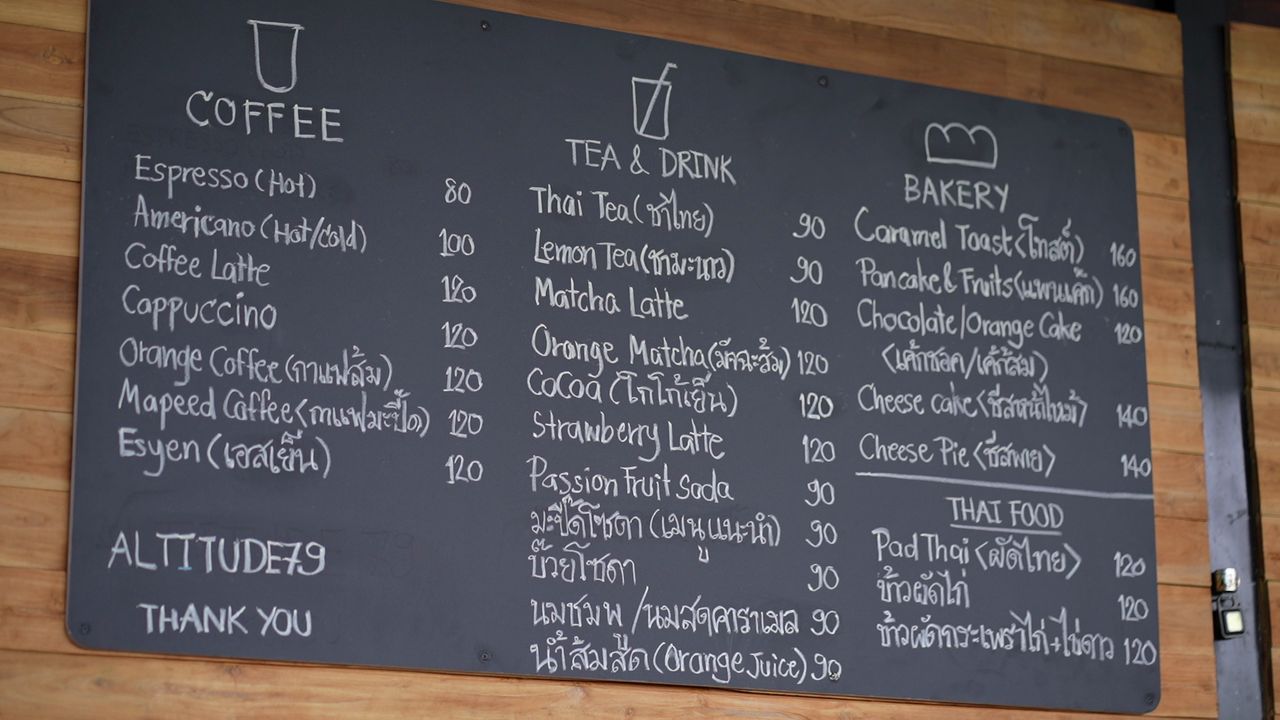 COFFEE
Espresso (Hot) 80
Americano (Hot/Cold) 100
Coffee Latte 120
Cappuccino 120
Orange Coffee (กาแฟส้ม) 120
Mapeed Coffee <กาแฟมะปี๊ด> 120
Esyen (เอสเย็น) 120
ALTITUDE79
THANK YOU
TEA & DRINK
Thai Tea (ชาไทย) 90
Lemon Tea (ชามะนาว) 90
Matcha Latte 120
Orange Matcha (มัจฉะส้ม) 120
CoCoa (โกโก้เย็น) 120
Strawberry Latte 120
Passion Fruit soda 90
มะปี๊ดโซดา (เมนูแนะนำ) 90
บ๊วยโซดา 90
นมชมพู /นมสดคาราเมล 90
น้ำส้มสด (Orange Juice) 90
BAKERY
Caramel Toast <โทสต์> 160
Pancake & Fruits (แพนเค้ก) 160
Chocolate/Orange Cake 120
<เค้กชอค/เค้กส้ม)
Cheese cake <ชีสหน้าไหม้> 140
Cheese Pie <ชีสพาย> 140
THAI FOOD
Pad Thai <ผัดไทย> 120
ข้าวผัดไก่ 120
ข้าวผัดกระเพราไก่+ไข่ดาว 120